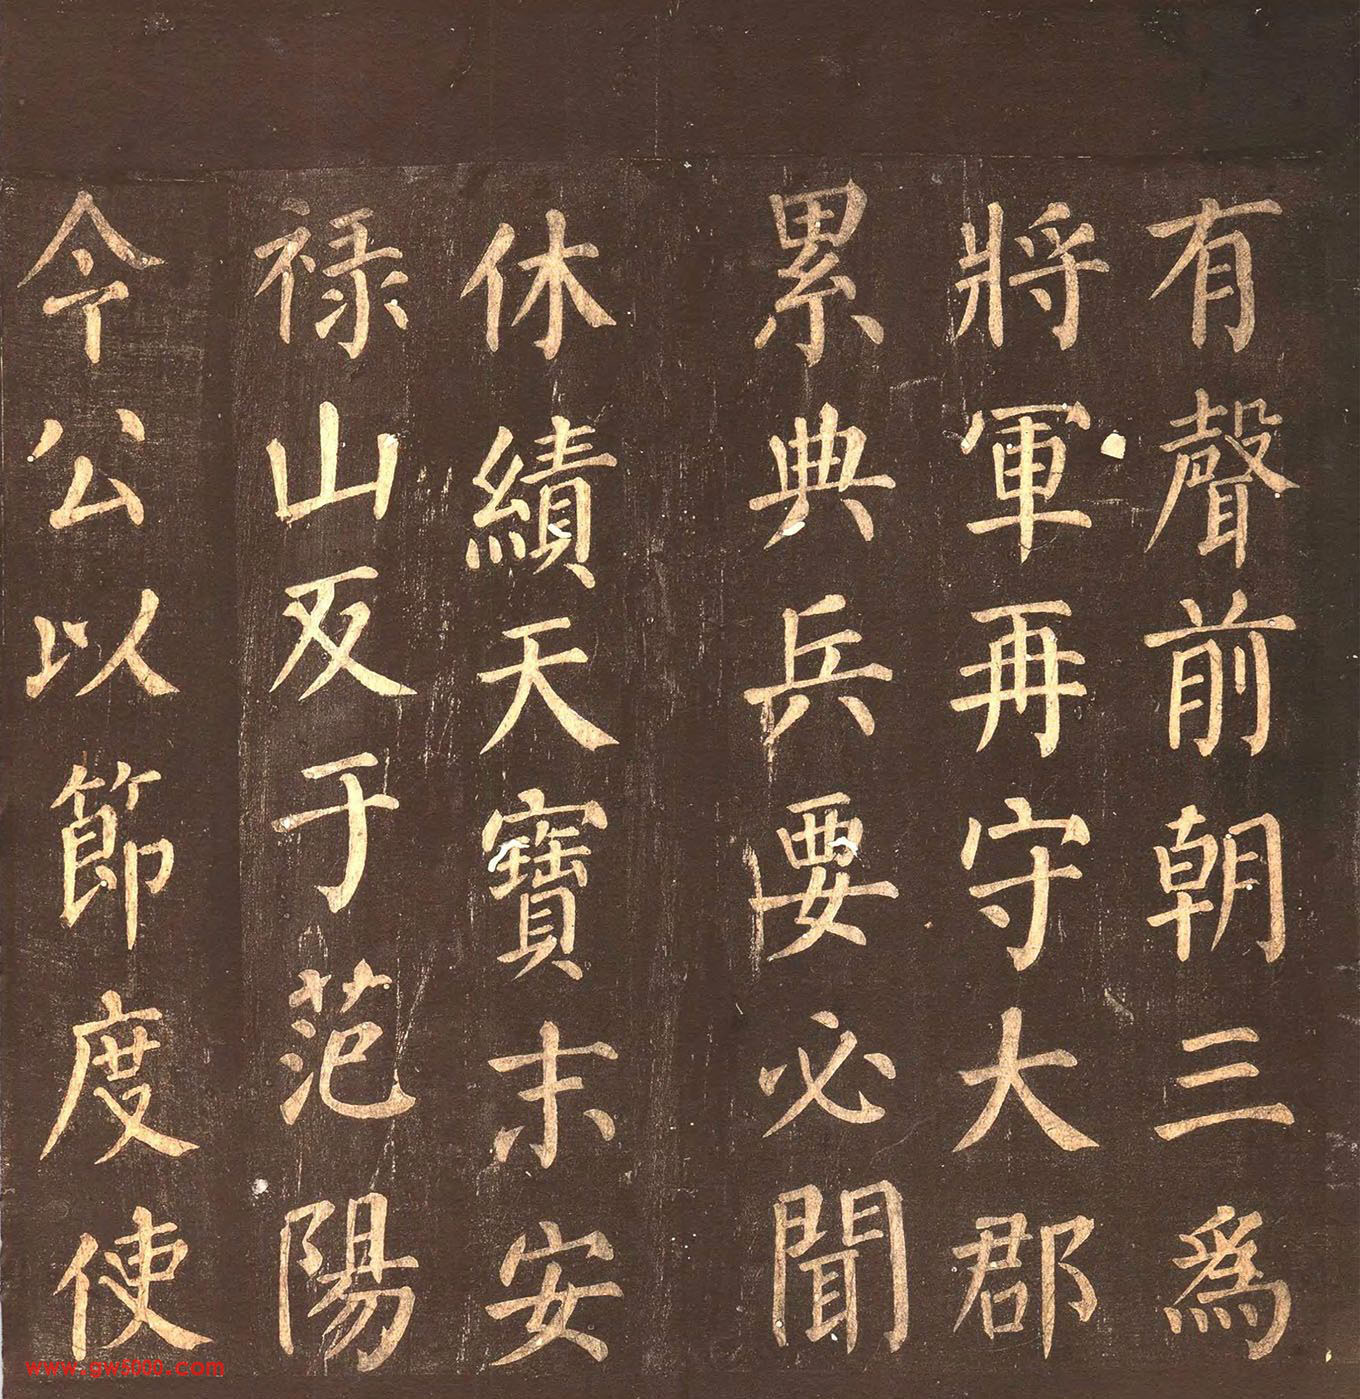 有聲前朝三爲
將軍再守大郡
累典兵要必聞
休績天寶末安
禄山反于范陽
今公以節度使
www.gw5000.com